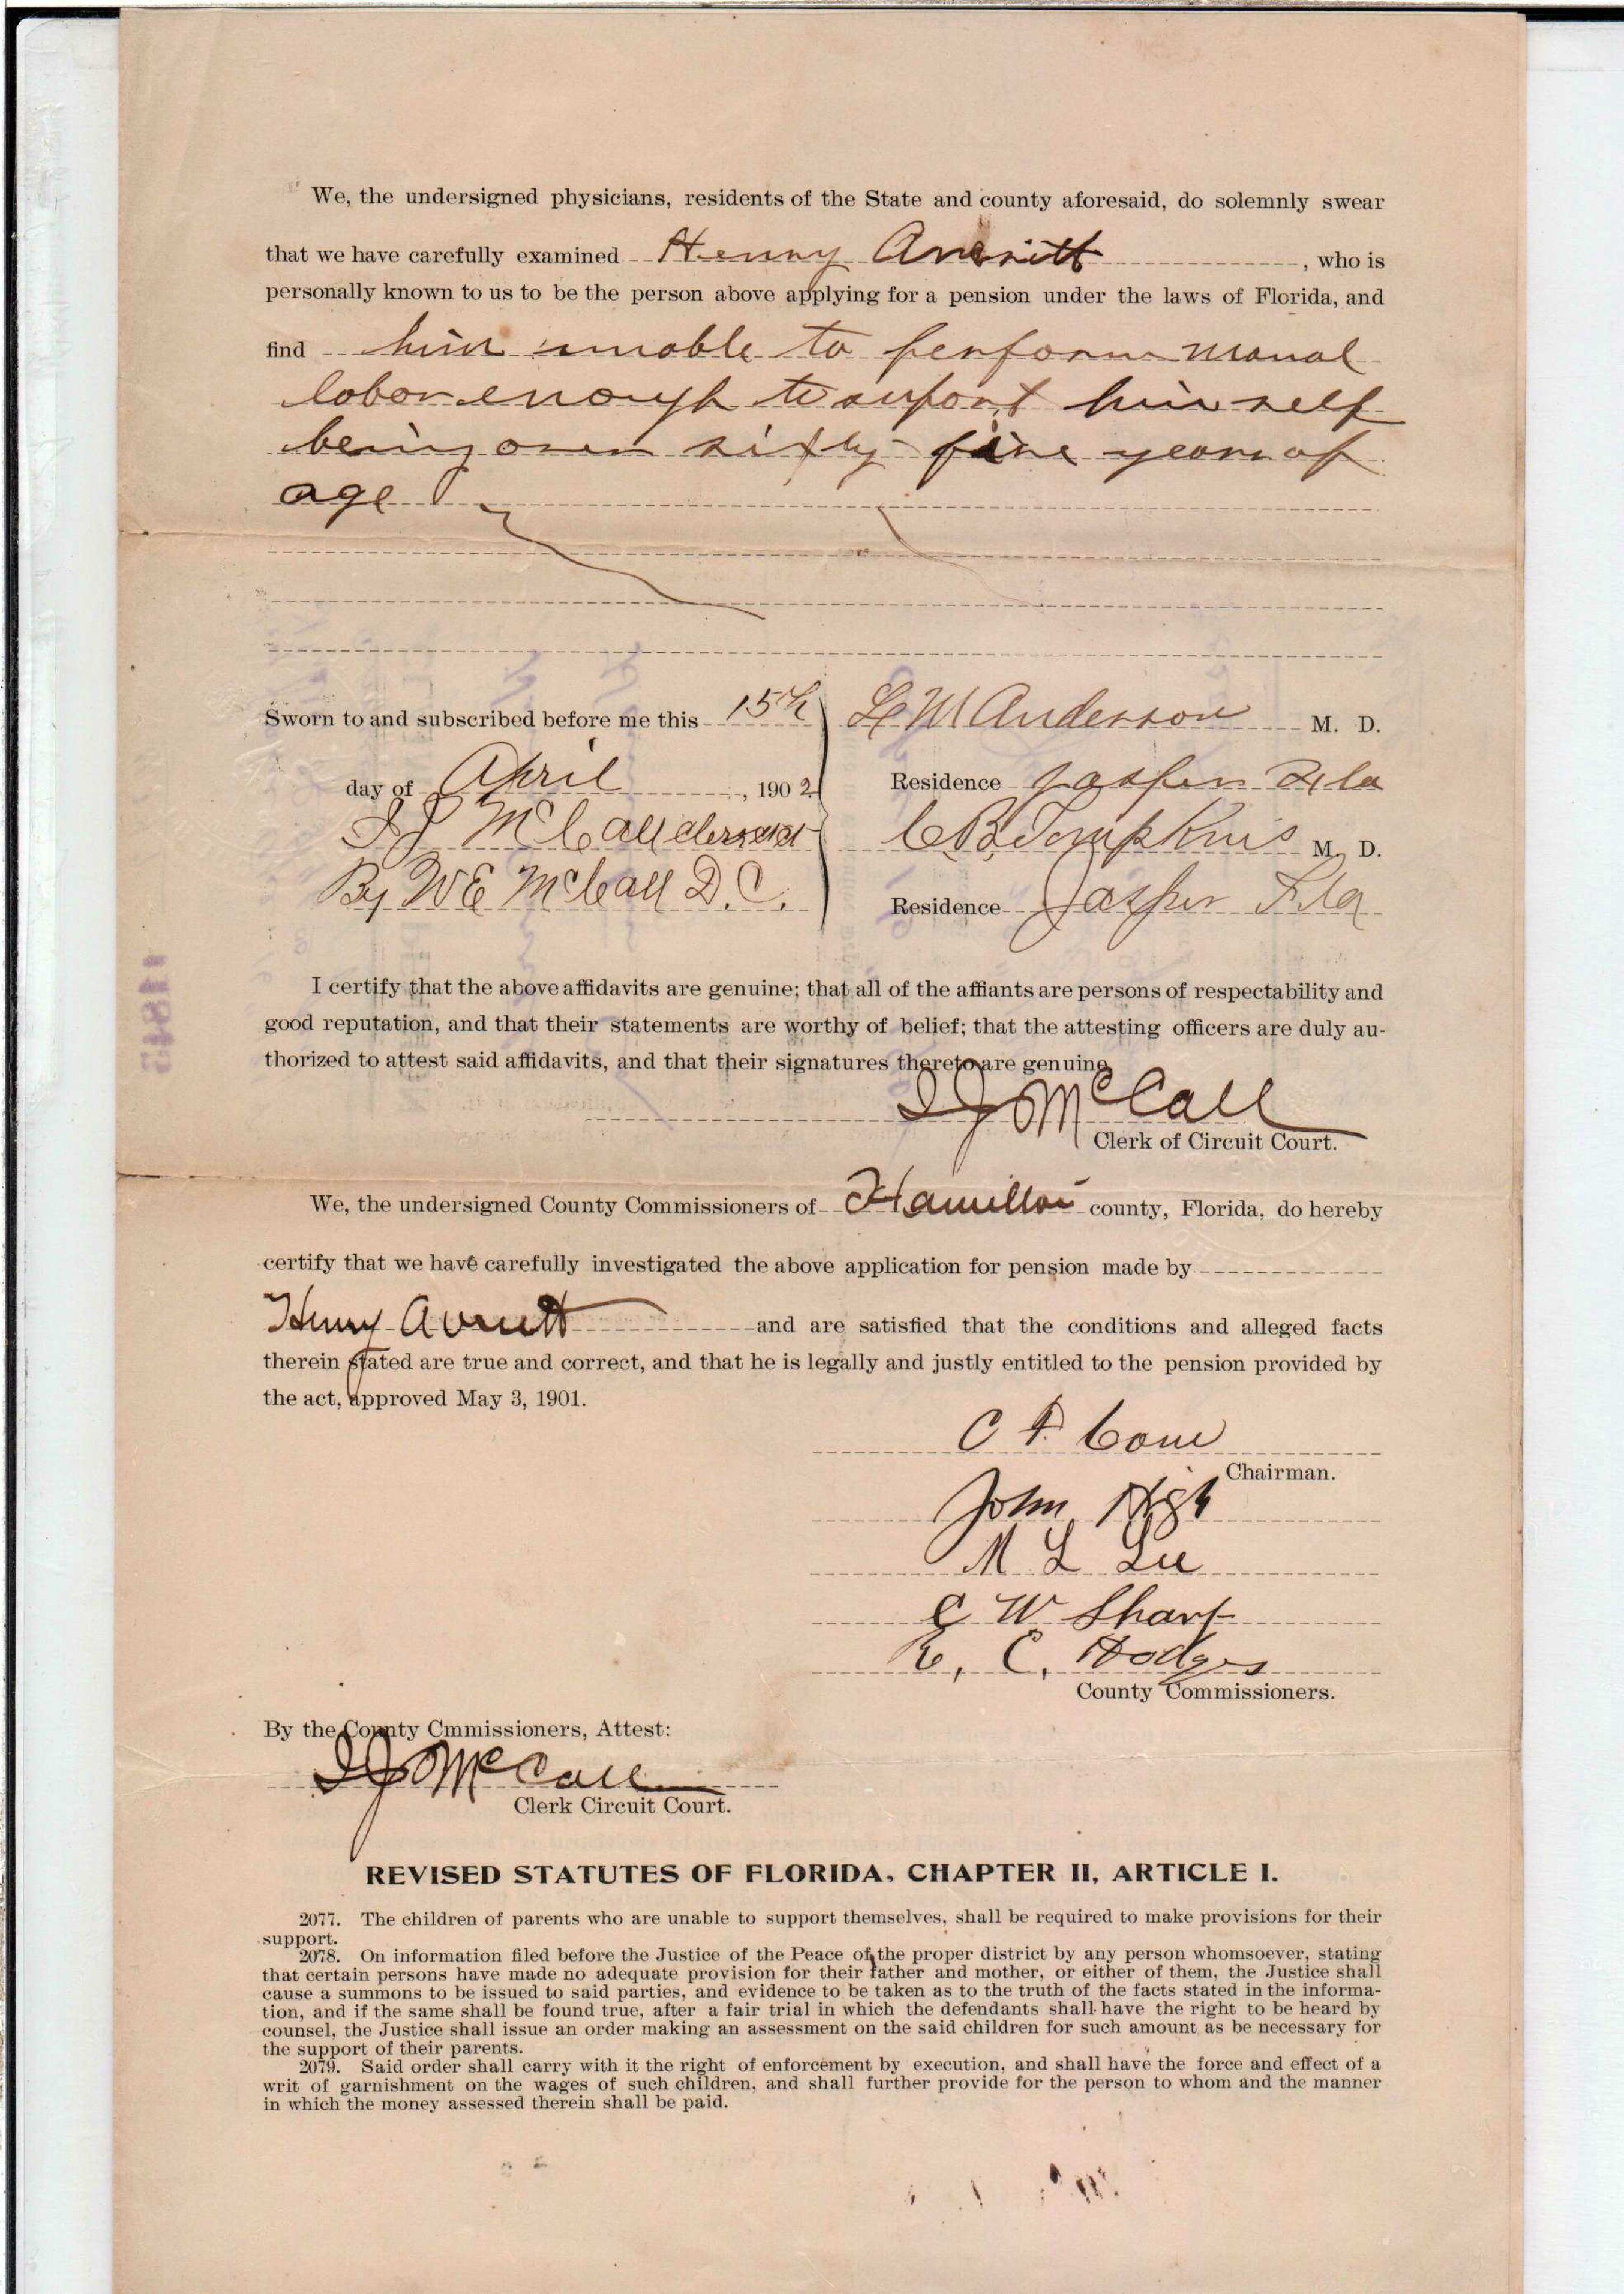 We, the undersigned physicians, residents of the State and county aforesaid, do solemnly swear
that we have carefully examined Henry Averitt, who is
personally known to us to be the person above applying for a pension under the laws of Florida, and
find him unable to perform manal
labor enough to suport him self
being over sixty-five years of
age
Sworn to and subscribed before me this 15th L M Anderson M. D.
day of April, 1902 Residence Jasper Fla
I J McCall C B Tompkins M. D.
By W E McCall D. C. Residence Jasper Fla
I certify that the above affidavits are genuine; that all of the affiants are persons of respectability and
good reputation, and that their statements are worthy of belief; that the attesting officers are duly au-
thorized to attest said affidavits, and that their signatures thereto are genuine
I J McCall
Clerk of Circuit Court.
We, the undersigned County Commissioners of Hamilton county, Florida, do hereby
certify that we have carefully investigated the above application for pension made by
Henry Averitt and are satisfied that the conditions and alleged facts
therein stated are true and correct, and that he is legally and justly entitled to the pension provided by
the act, approved May 3, 1901.
C F Cone
Chairman.
John High
M L Lee
C W Sharp
R. C. Hodges
County Commissioners.
By the County Cmmissioners, Attest:
I J McCall
Clerk Circuit Court.
REVISED STATUTES OF FLORIDA, CHAPTER II, ARTICLE I.
2077. The children of parents who are unable to support themselves, shall be required to make provisions for their
support.
2078. On information filed before the Justice of the Peace of the proper district by any person whomsoever, stating
that certain persons have made no adequate provision for their father and mother, or either of them, the Justice shall
cause a summons to be issued to said parties, and evidence to be taken as to the truth of the facts stated in the informa-
tion, and if the same shall be found true, after a fair trial in which the defendants shall have the right to be heard by
counsel, the Justice shall issue an order making an assessment on the said children for such amount as be necessary for
the support of their parents.
2079. Said order shall carry with it the right of enforcement by execution, and shall have the force and effect of a
writ of garnishment on the wages of such children, and shall further provide for the person to whom and the manner
in which the money assessed therein shall be paid.